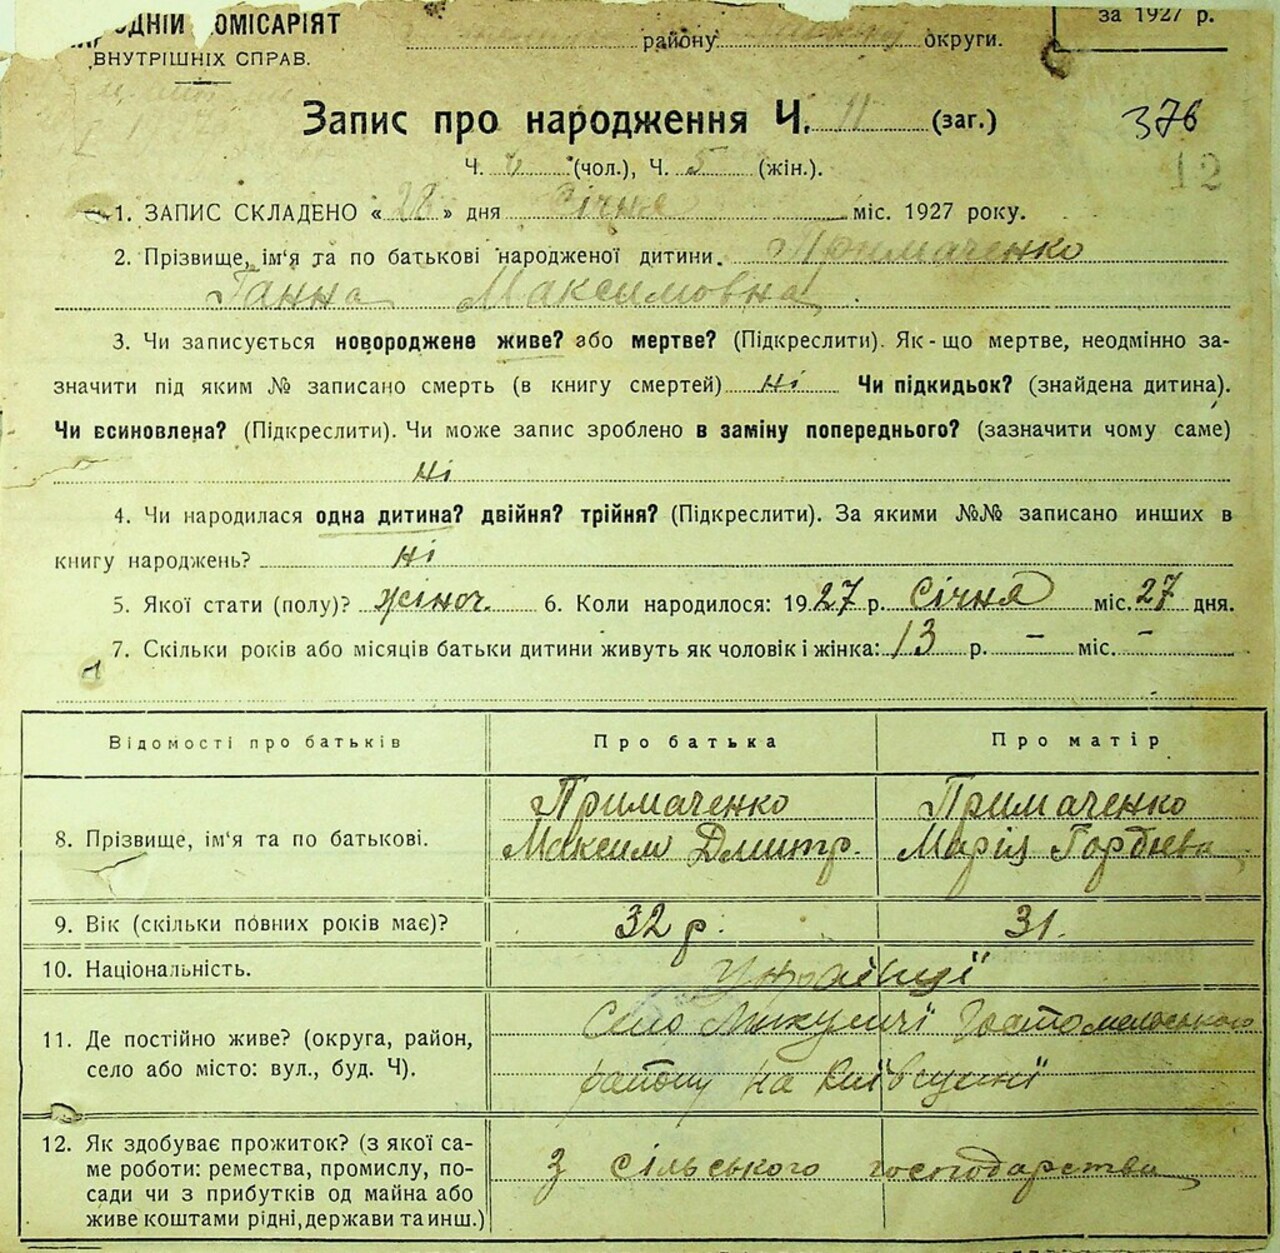 ОДНІЙ КОМІСАРІЯТ за 1927 р.
району округи.
ВНУТРІШНІХ СПРАВ.
Запис про народження Ч. 11 (заг.) 376
Ч. (чол.), Ч. 5 (жін.).
12
1. ЗАПИС СКЛАДЕНО « 28 » дня Січня міс. 1927 року.
2. Прізвище, ім'я та по батькові народженої дитини. Примаченко
Ганна Максимовна
3. Чи записується новороджене живе? або мертве? (Підкреслити). Як-що мертве, неодмінно за-
значити під яким № записано смерть (в книгу смертей) ні Чи підкидьок? (знайдена дитина).
Чи всиновлена? (Підкреслити). Чи може запис зроблено в заміну попереднього? (зазначити чому саме)
ні
4. Чи народилася одна дитина? двійня? трійня? (Підкреслити). За якими №№ записано инших в
книгу народжень? ні
5. Якої стати (полу)? жіноч. 6. Коли народилося: 1927 р. Січня міс. 27 дня.
7. Скільки років або місяців батьки дитини живуть як чоловік і жінка: 13 р. – міс. –
Відомості про батьків Про батька Про матір
8. Прізвище, ім'я та по батькові. Примаченко Максим Дмитр. Примаченко Марія
9. Вік (скільки повних років має)? 32 р. 31.
10. Національність. Українці
11. Де постійно живе? (округа, район, Село Микуличі Гостомельського
село або місто: вул., буд. Ч). району на Київщині
12. Як здобуває прожиток? (з якої са- З сільського господарства
ме роботи: ремества, промислу, по-
сади чи з прибутків од майна або
живе коштами рідні, держави та инш.)